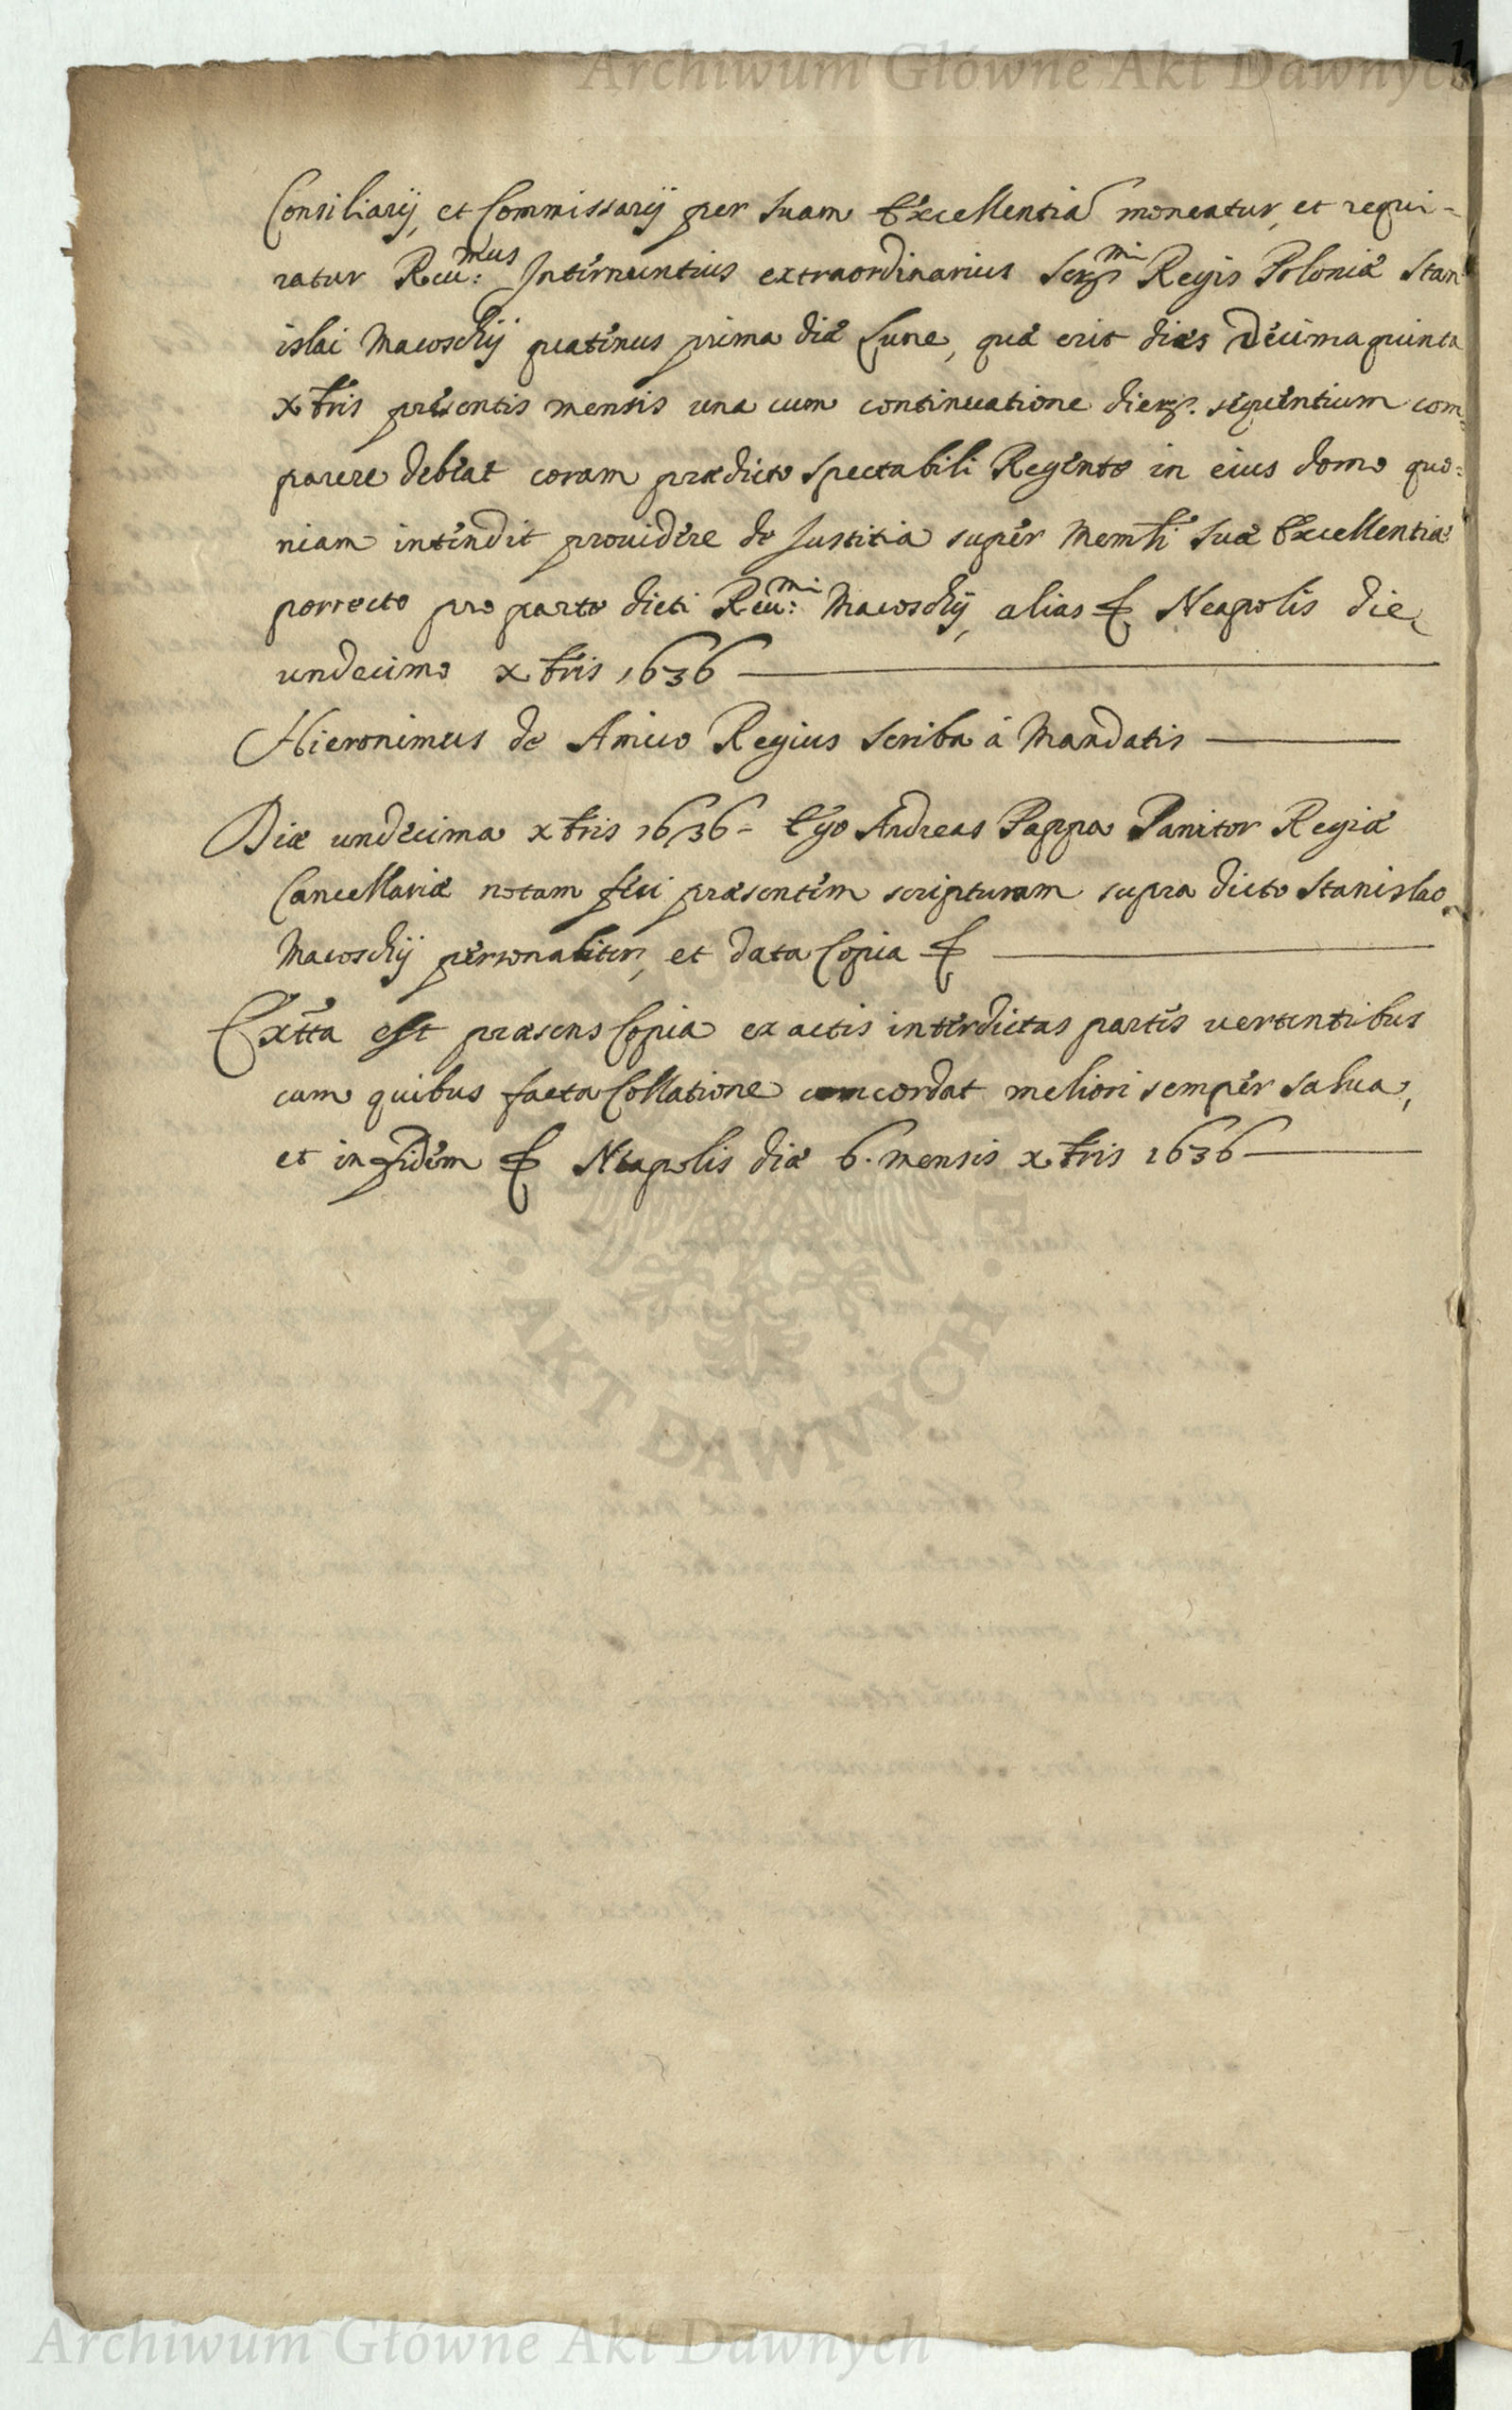 Archiwum Główne Akt Dawnych
Consiliarij, et Commissarij per suam Excellentiã moneatur, et requi-
ratur Reu:mus Internuntius extraordinarius Ser.mi Regis Poloniæ Stan
islai Macoschij quatinus prima die Lune, quæ erit dies decima quinta
xbris presentis mensis una cum continuatione dierꝝ. sequentium com=
parere debeat coram prædicto spectabili Regente in eius domo quo=
niam intendit prouidere de Justitia super Memli suæ Excellentiæ
porrecto pro parte dicti Reu:mi Macoschij, alias & Neapolis die
undecimo xbris 1636
Hieronimus de Amico Regius scriba à Mandatis
Die undecima xbris 1636 - Ego Andreas Pappa Janitor Regiæ
Cancellariæ notam feci præsentem scripturam supra dicto Stanislao
Macoschij personaliter, et data Copia &
Extta est præsens Copia ex actis inter dictas partes uertentibus
cum quibus facta Collatione concordat meliori semper salua,
et in fidem & Neapolis die 6. mensis xbris 1636
AKT DAWNYCH
Archiwum Główne Akt Dawnych